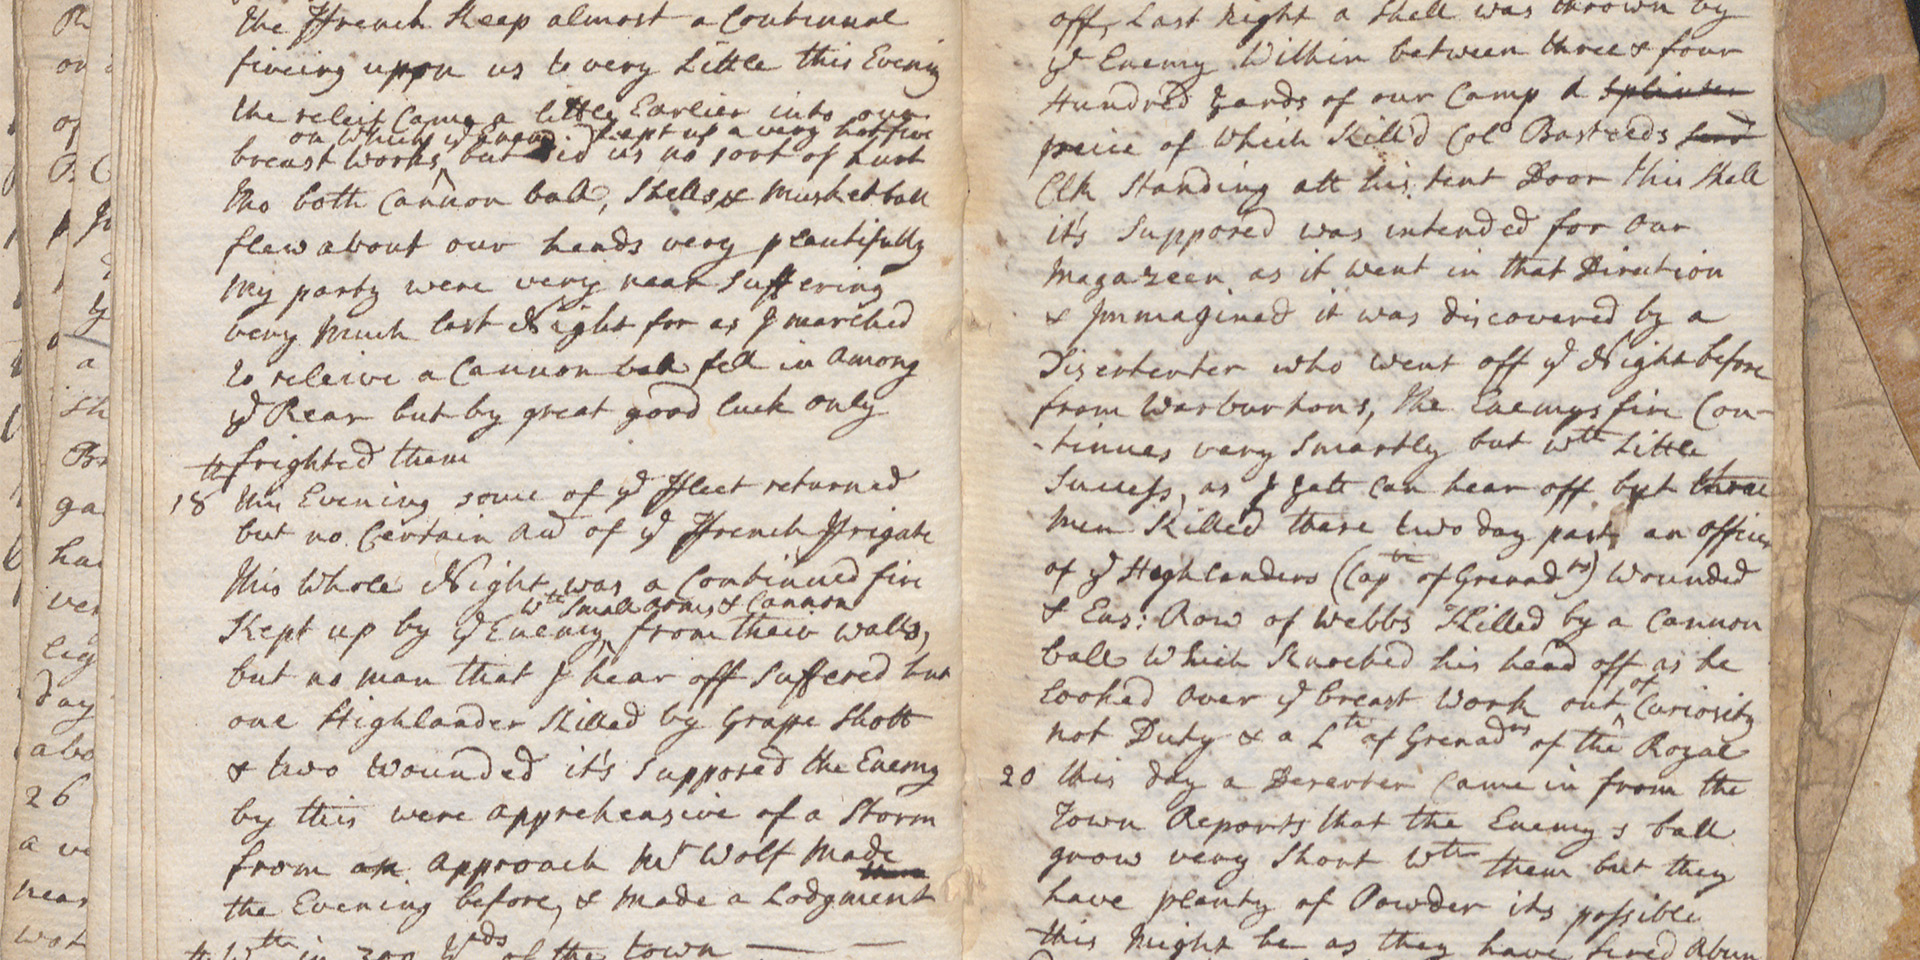 the Ffrench Keep almost a Continual
fireing upon us to very Little this Evenig
the releif Came a little Earlier into our
on Which yᵉ Enemy Kept up a very hot fire
breast works, but did us no sort of hurt
tho both Cannon ball, Shells, & Musket ball
flew about our heads very plentifully
My party were very near Suffering
very Much last Night for as I marched
to releive a Cannon ball fell in Among
yᵉ Rear but by great good luck only
frighted them
18 this Evening some of yᵉ Ffleet returned
but no Certain of yᵉ Ffrench Ffrigate
This Whole Night was a Continued fire
wᵗʰ Small arms & Cannon
Kept up by yᵉ Enemy, from their walls,
but no man that I hear off Suffered but
one Highlander Killed by Grape Shott
& two Wounded it's Supposed the Enemy
by this were apprehensive of a Storm
from an approach Mʳ Wolf Made
the Evening before, & made a Lodgment
wᵗʰ in 300 Yᵈˢ of the town —— —
off, Last Night a Shell was thrown by
yᵉ Enemy Within between three & four
Hundred Yards of our Camp A Splinter
peice of Which Kill'd Colᵒ Basteeds
Clk Standing att his tent Door this Shell
it's Supposed was intended for our
Magazeen as it went in that Dirention
& Immagined it was discovered by a
Diserterter who went off yᵉ Night before
from Warburtons, The Enemys fire Con-
-tinues very Smartly but wᵗʰ Little
Success, as I Yett Can hear off but three
Men Killed these two day past, an officer
of yᵉ Highlanders (Capᵗⁿ of Grenadʳˢ) Wounded
& Ens: Row of Webbs Killed by a Cannon
ball Which Knocked his head off as he
looked Over yᵉ breast Work out of Curiosity
not Duty & a Lᵗⁿ of Grenadʳˢ of the Royal
20 this day a Deserter Came in from the
Town Reports that the Enemy's ball
grow very Short Wᵗʰ them but they
have plenty of Powder its possible
this Might be as they have fired Abun
26
a
day